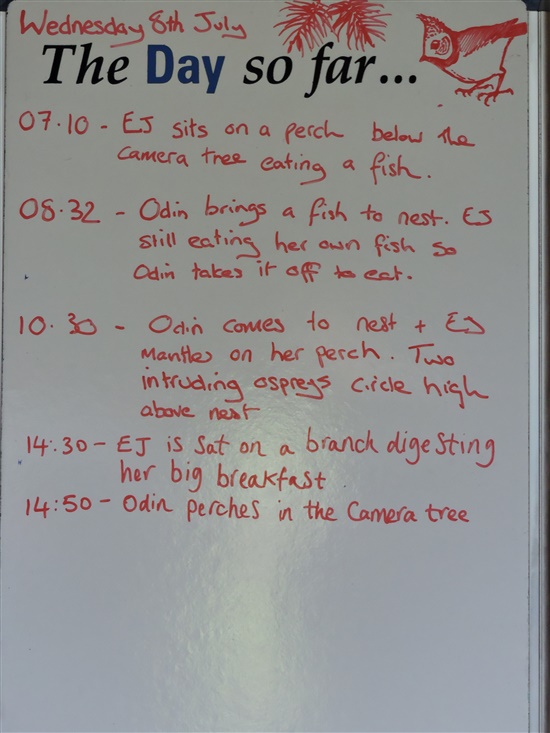 Wednesday 8th July
The Day so far...
07.10 - EJ sits on a perch below the
camera tree eating a fish.
08.32 - Odin brings a fish to nest. EJ
still eating her own fish so
Odin takes it off to eat.
10.30 - Odin comes to nest + EJ
mantles on her perch. Two
intruding ospreys circle high
above nest
14.30 - EJ is sat on a branch digesting
her big breakfast.
14:50 - Odin perches in the Camera tree